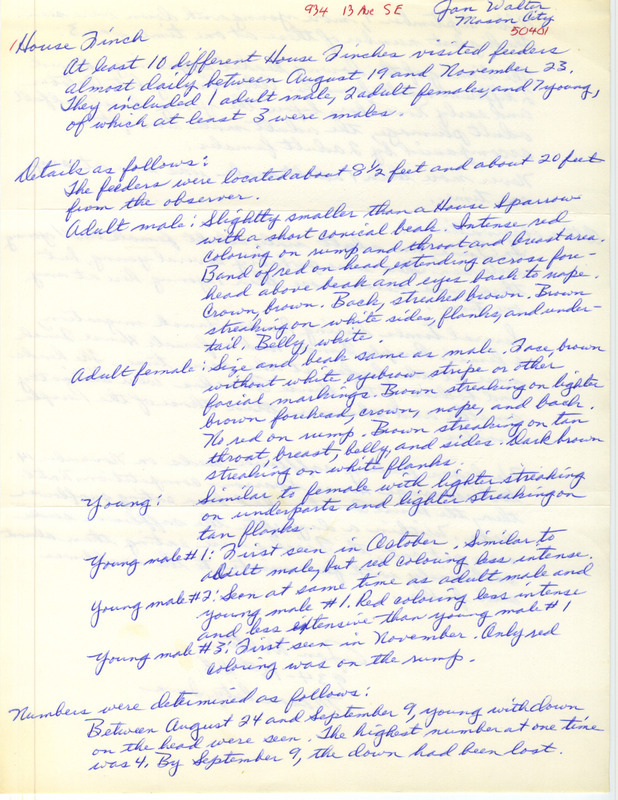 934 13 Ave SE
Jan Walter
Mason City
50401
1 House Finch
At least 10 different House Finches visited feeders
almost daily between August 19 and November 23.
They included 1 adult male, 2 adult females, and 7 young,
of which at least 3 were males.
Details as follows:
The feeders were located about 8 1/2 feet and about 20 feet
from the observer.
Adult male: Slightly smaller than a House Sparrow
with a short conical beak. Intense red
coloring on rump and throat and breast area.
Band of red on head, extending across fore-
head above beak and eyes back to nape.
Crown, brown. Back, streaked brown. Brown
streaking on white sides, flanks, and under-
tail. Belly, white.
Adult female: Size and beak same as male. Face, brown
without white eyebrow stripe or other
facial markings. Brown streaking on lighter
brown forehead, crown, nape, and back.
No red on rump. Brown streaking on tan
throat, breast, belly, and sides. Dark brown
streaking on white flanks.
Young: Similar to female with lighter streaking
on underparts and lighter streaking on
tan flanks
Young male #1: First seen in October. Similar to
adult male, but red coloring less intense.
Young male #2: Seen at same time as adult male and
young male #1. Red coloring less intense
and less extensive than young male #1
Young male #3: First seen in November. Only red
coloring was on the rump.
Numbers were determined as follows:
Between August 24 and September 9, young with down
on the head were seen. The highest number at one time
was 4. By September 9, the down had been lost.